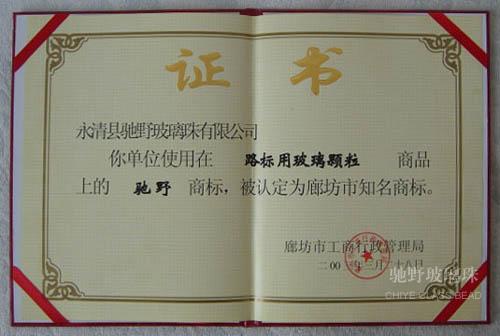 证 书
永清县驰野玻璃珠有限公司
你单位使用在 路标用玻璃颗粒 商品
上的 驰野 商标，被认定为廊坊市知名商标。
廊坊市工商行政管理局
二00 年三月二十八日
驰野玻璃珠
CHIYE GLASS BEAD